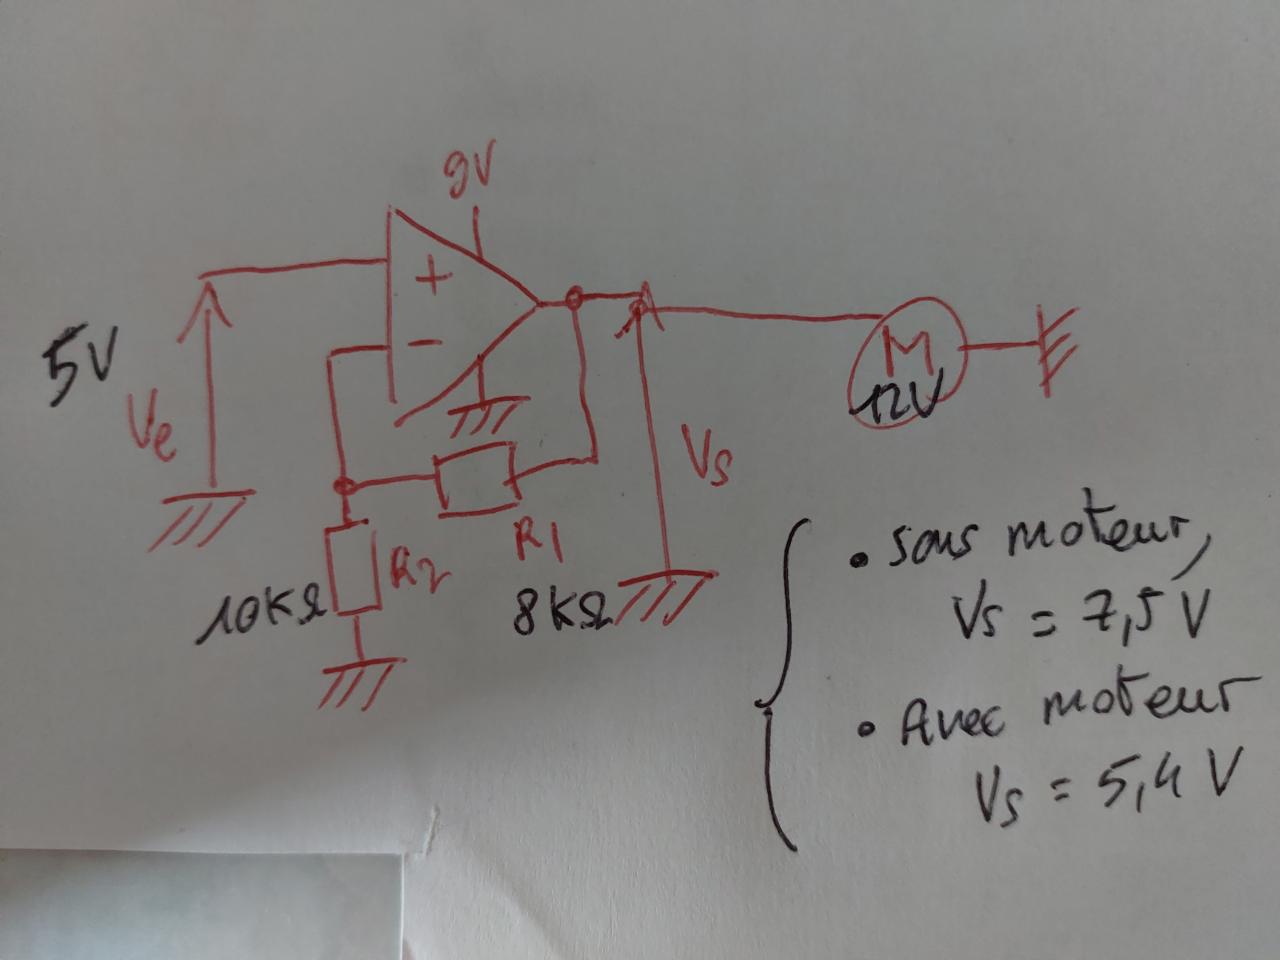 9V
+
5V
Ve
-
M
12V
Vs
R1
R2
10KΩ
8KΩ
• sans moteur,
Vs = 7,5 V
• Avec moteur
Vs = 5,4 V